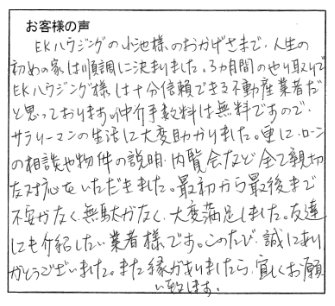 お客様の声
EKハウジングの小池様のおかげさまで、人生の
初めの家は順調に決まりました。3ヵ月間のやり取りで
EKハウジング様は十分信頼できる不動産業者だ
と思っております。仲介手数料は無料ですので、
サラリーマンの生活に大変助かりました。更に、ローン
の相談や物件の説明、内覧会など全て親切
な対応をいただきました。最初から最後まで
不安がなく、無駄がなく、大変満足しました。友達
にも紹介したい業者様です。このたび、誠にあり
がとうございました。また縁がありましたら、宜しくお願
い致します。